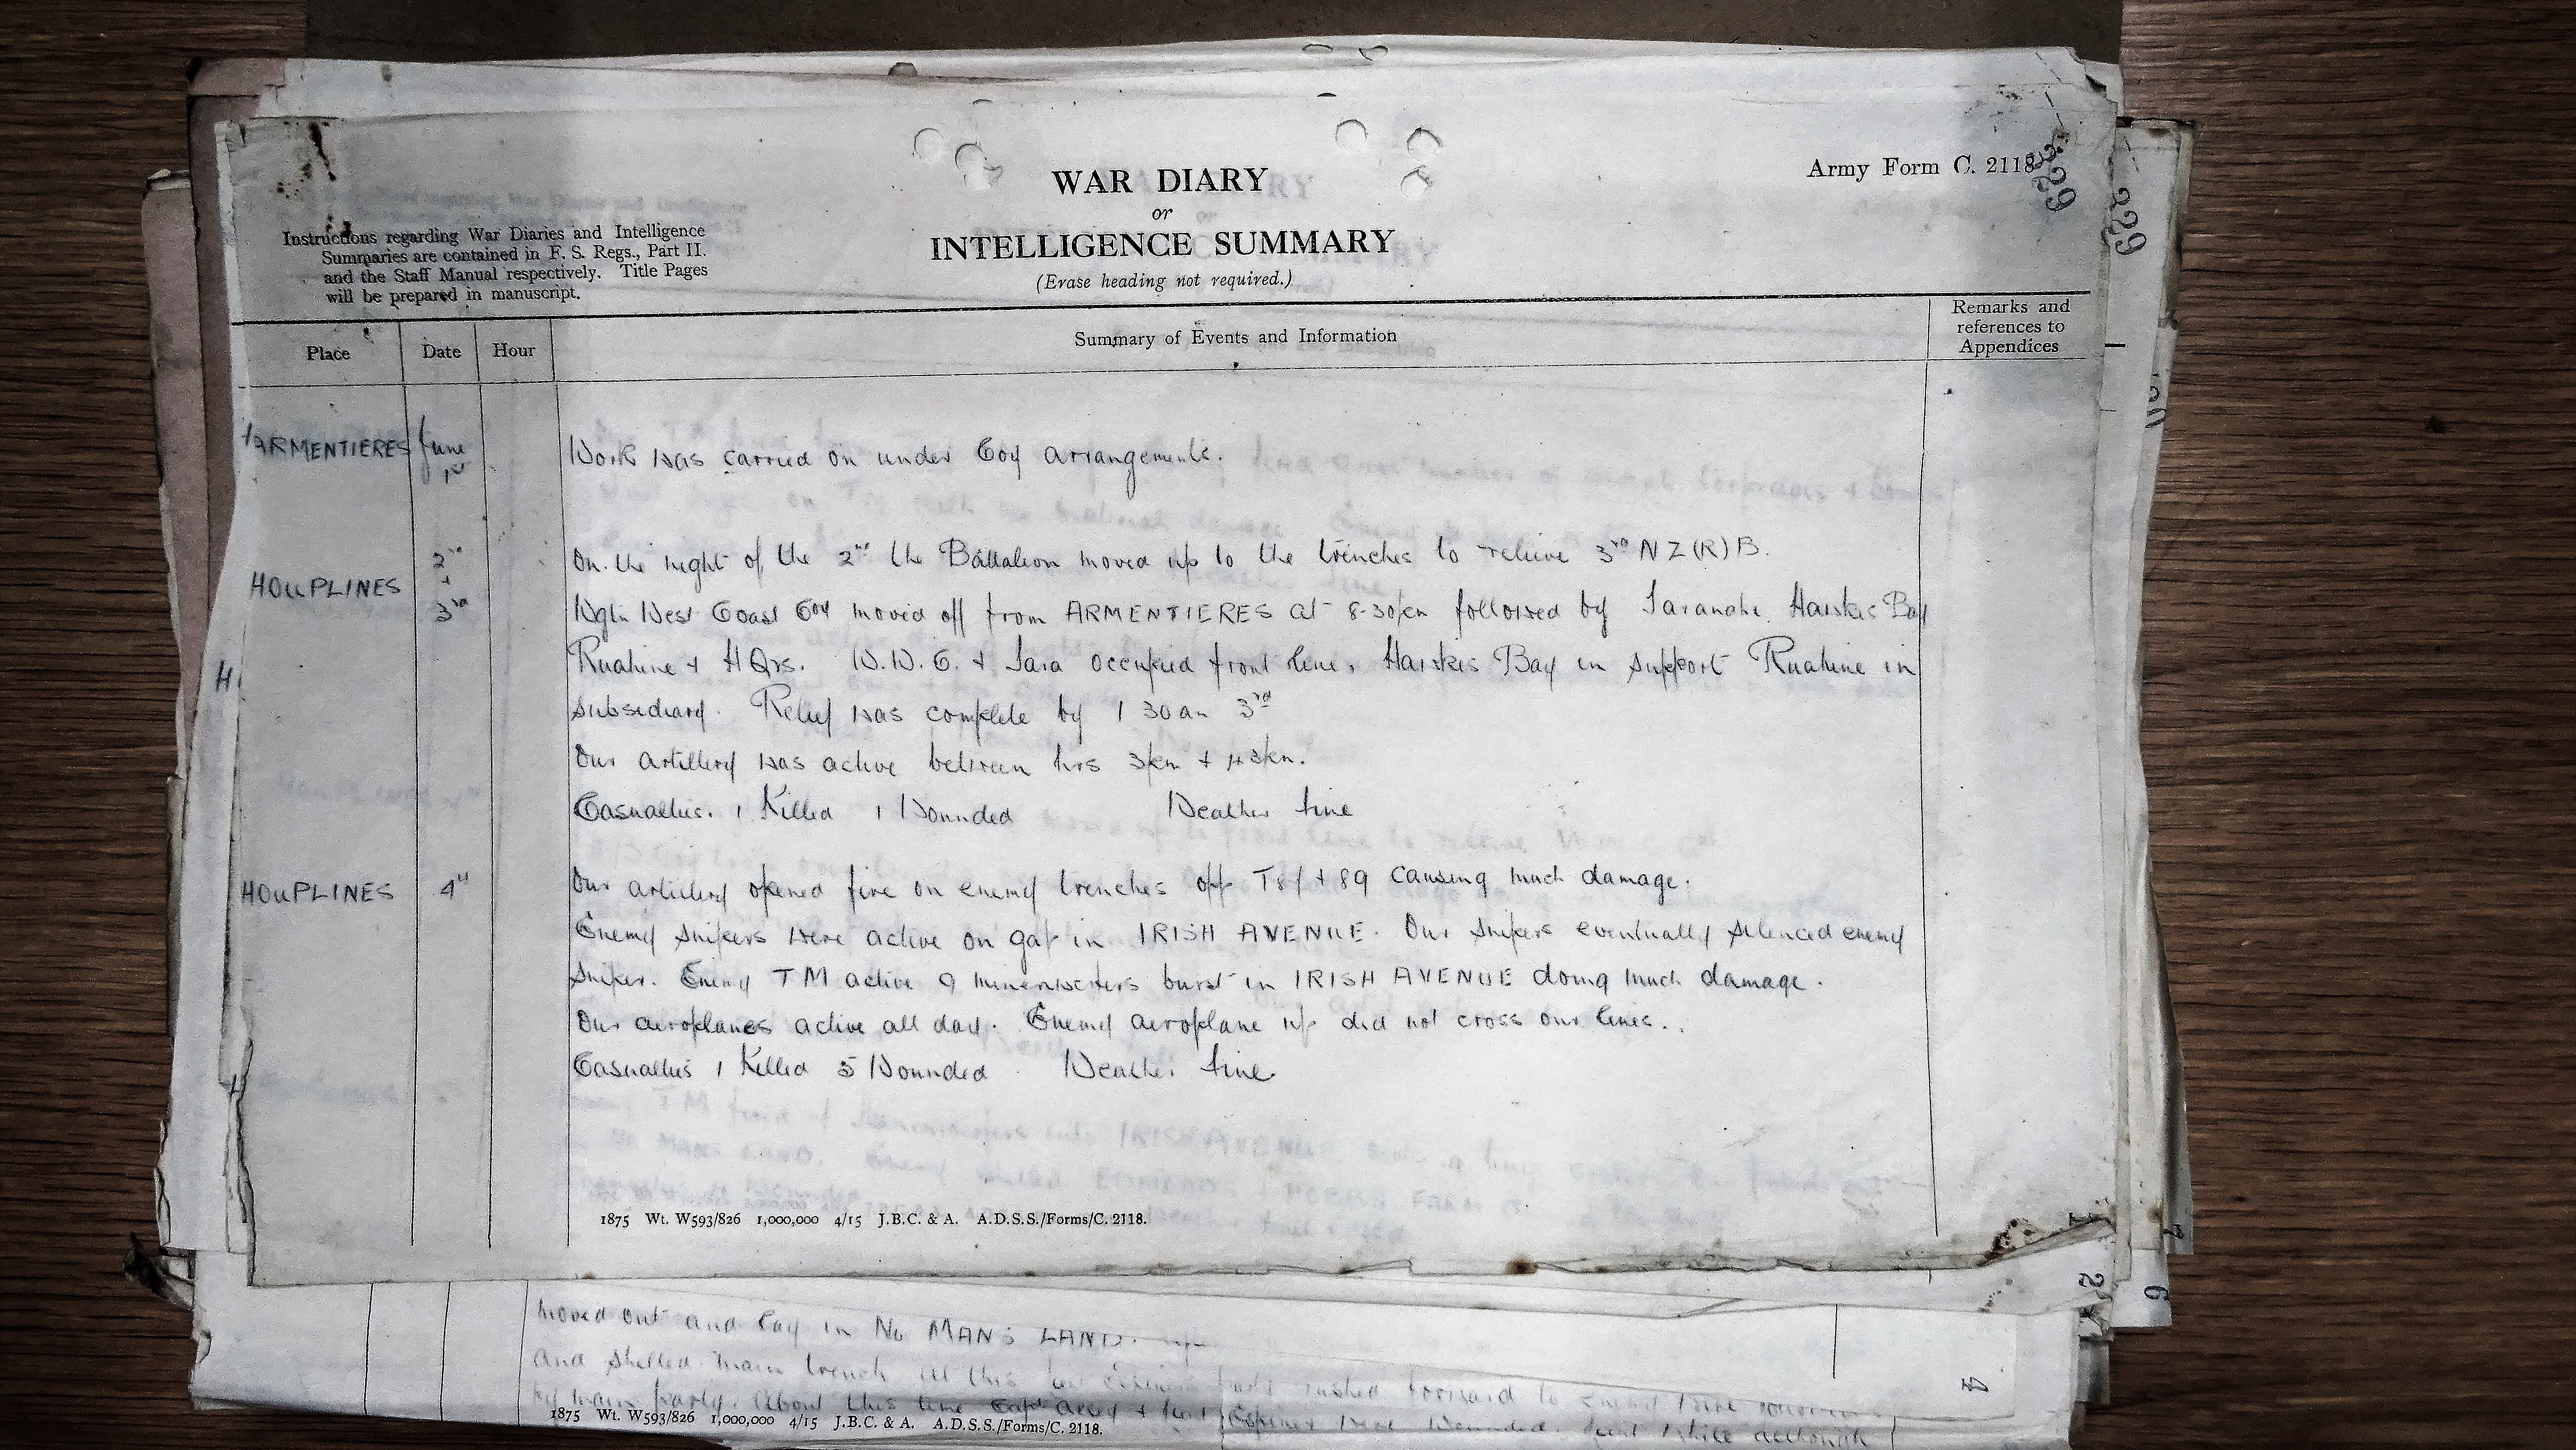 Army Form C. 2118.
229
229
WAR DIARY
or
INTELLIGENCE SUMMARY
(Erase heading not required.)
Instructions regarding War Diaries and Intelligence
Summaries are contained in F. S. Regs., Part II.
and the Staff Manual respectively. Title Pages
will be prepared in manuscript.
Place Date Hour Summary of Events and Information Remarks and
references to
Appendices
ARMENTIERES June
1st Work was carried on under Coy arrangements.
HOUPLINES 2nd
+
3rd On the night of the 2nd the Battalion moved up to the trenches to relieve 3rd NZ(R)B.
Wgtn West Coast Coy moved off from ARMENTIERES at 8-30pm followed by Taranaki, Hawkes Bay
Ruahine + HQrs. W.W.C. + Tara occupied front line, Hawkes Bay in support Ruahine in
subsidiary. Relief was complete by 1 30 am 3rd
Our artillery was active between hrs 3pm +
Casualties. 1 Killed 1 Wounded Weather fine
HOUPLINES 4th Our artillery opened fire on enemy trenches opp + 89 causing much damage.
Enemy snipers were active on gap in IRISH AVENUE. Our snipers eventually silenced enemy
sniper. Enemy TM active 9 minenwerfers burst in IRISH AVENUE doing much damage.
Our aeroplanes active all day. Enemy aeroplane up did not cross our lines..
Casualties 1 Killed 5 Wounded Weather fine
1875 Wt. W593/826 1,000,000 4/15 J.B.C. & A. A.D.S.S./Forms/C. 2118.
moved out and lay in No MANS LAND.
and shelled main trench At this rushed forward to enemy
by main party. About this time Capt + were wounded.
1875 Wt. W593/826 1,000,000 4/15 J.B.C. & A. A.D.S.S./Forms/C. 2118.